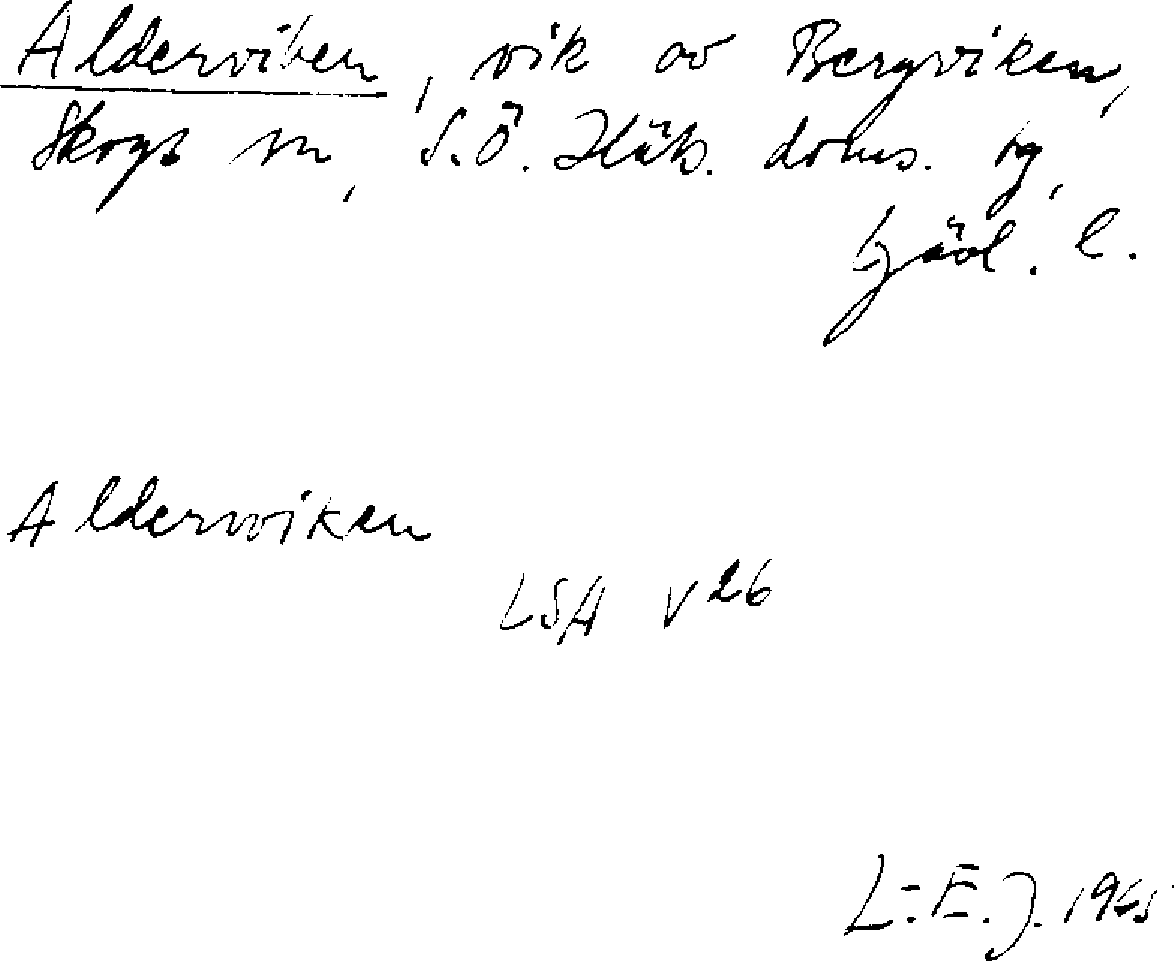 Alderviken, vik av Bergviken,
Skogs sn, S.Ö. Häls. doms. tg,
Gävl. l.
Alderviken
LSA V26
L.-E. J. 1965